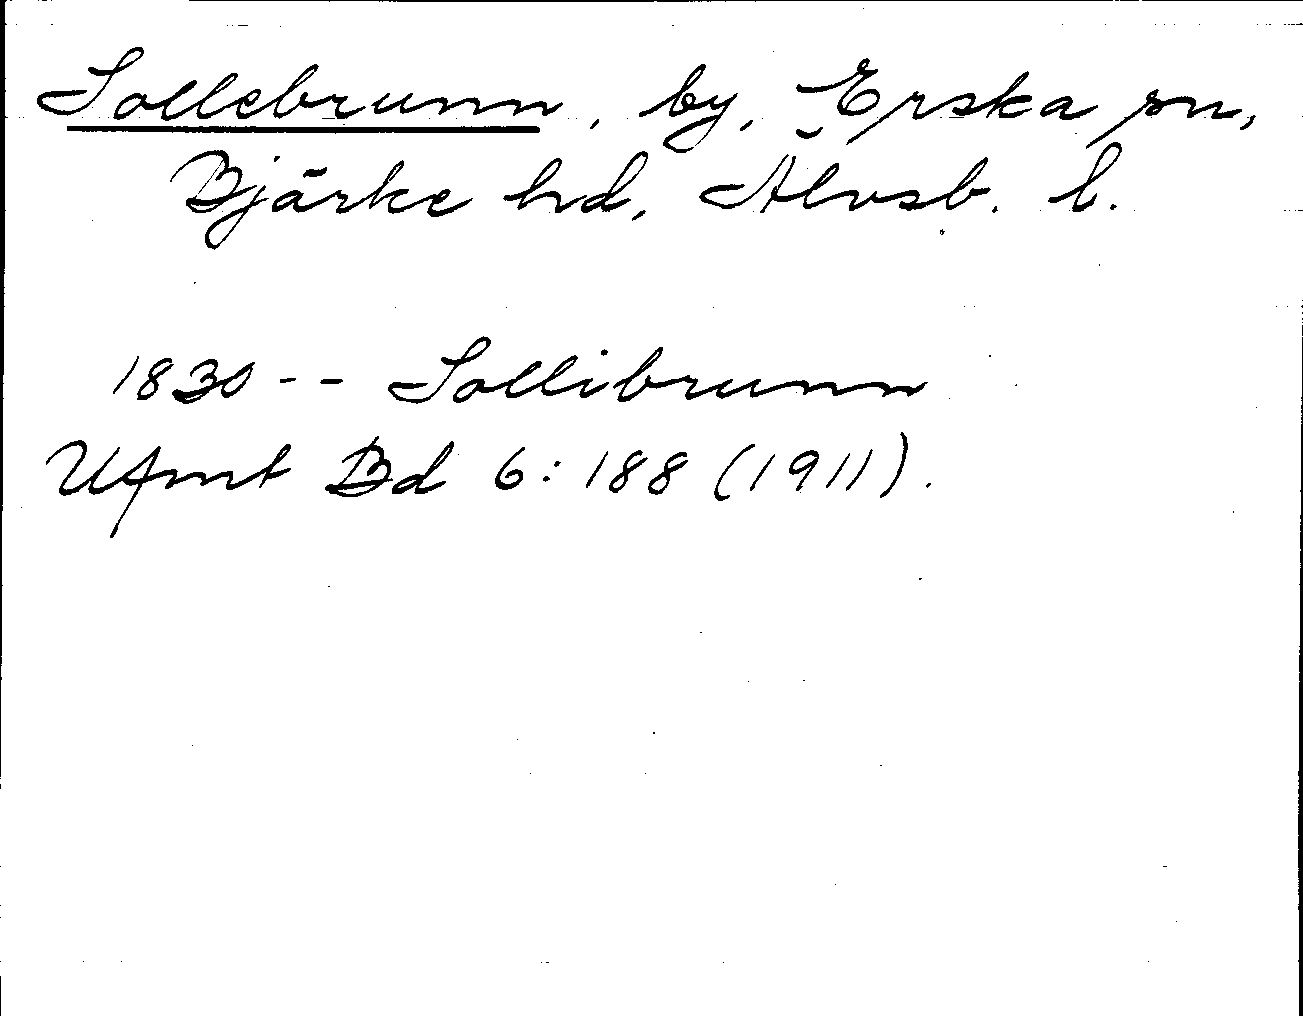 Sollebrunn, by, Erska sn,
Bjärke hd, Älvsb. l.
1830 -- Sollibrunn
Ufmt Bd 6:188 (1911).